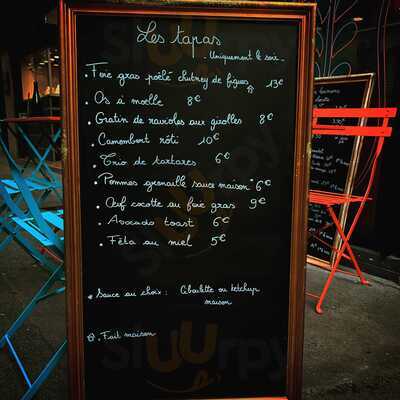 Les tapas
- Uniquement le soir -
Foie gras poêlé chutney de figues 13€
. Os à moelle 8€
. Gratin de ravioles aux girolles 8€
. Camembert rôti 10€
. Trio de tartares 6€
. Pommes grenaille sauce maison* 6€
. Œuf cocotte au foie gras 9€
. Avocado toast 6€
. Fêta au miel 5€
* Sauce au choix : Ciboulette ou ketchup
maison
. Fait maison